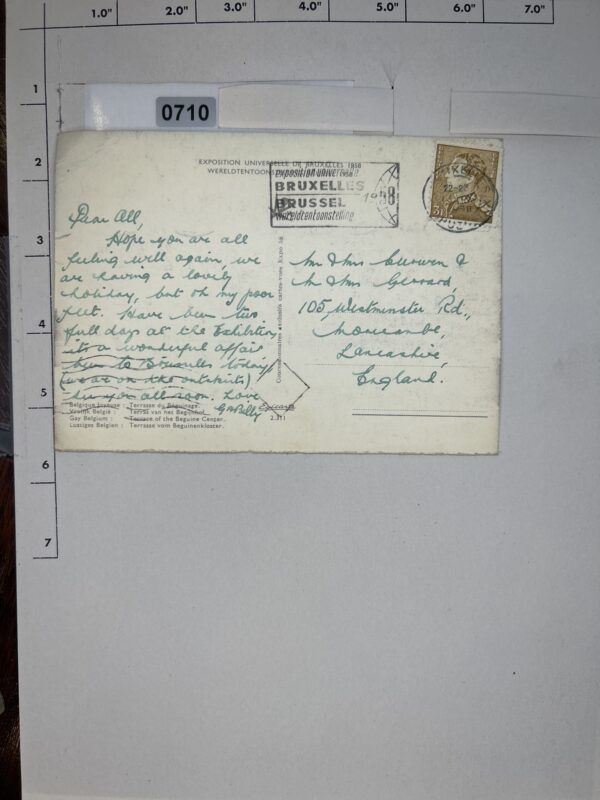 1.0" 2.0" 3.0" 4.0" 5.0" 6.0" 7.0"
1
2
3
4
5
6
7
0710
EXPOSITION UNIVERSELLE DE BRUXELLES 1958
WERELDTENTOONS
exposition universelle
BRUXELLES
BRUSSEL
wereldtentoonstelling
1958
Dear All,
Hope you are all
feeling well again, we
are having a lovely
holiday, but oh my poor
feet. Have been two
full days at the Exhibition,
its a wonderful affair
been to Brussels today
(we are on the outskirts)
See you all soon. Love
Mr & Mrs Curwen &
Mr & Mrs Gerrard,
105, Westminster Rd.,
Morecambe,
Lancashire,
England.
Belgique Joyeuse : Terrasse du Béguinage.
Vrolijk België : Terras van het Begijnhof.
Gay Belgium : Terrasse of the Beguine Center.
Lustiges Belgien : Terrasse vom Beguinenkloster.
2.311